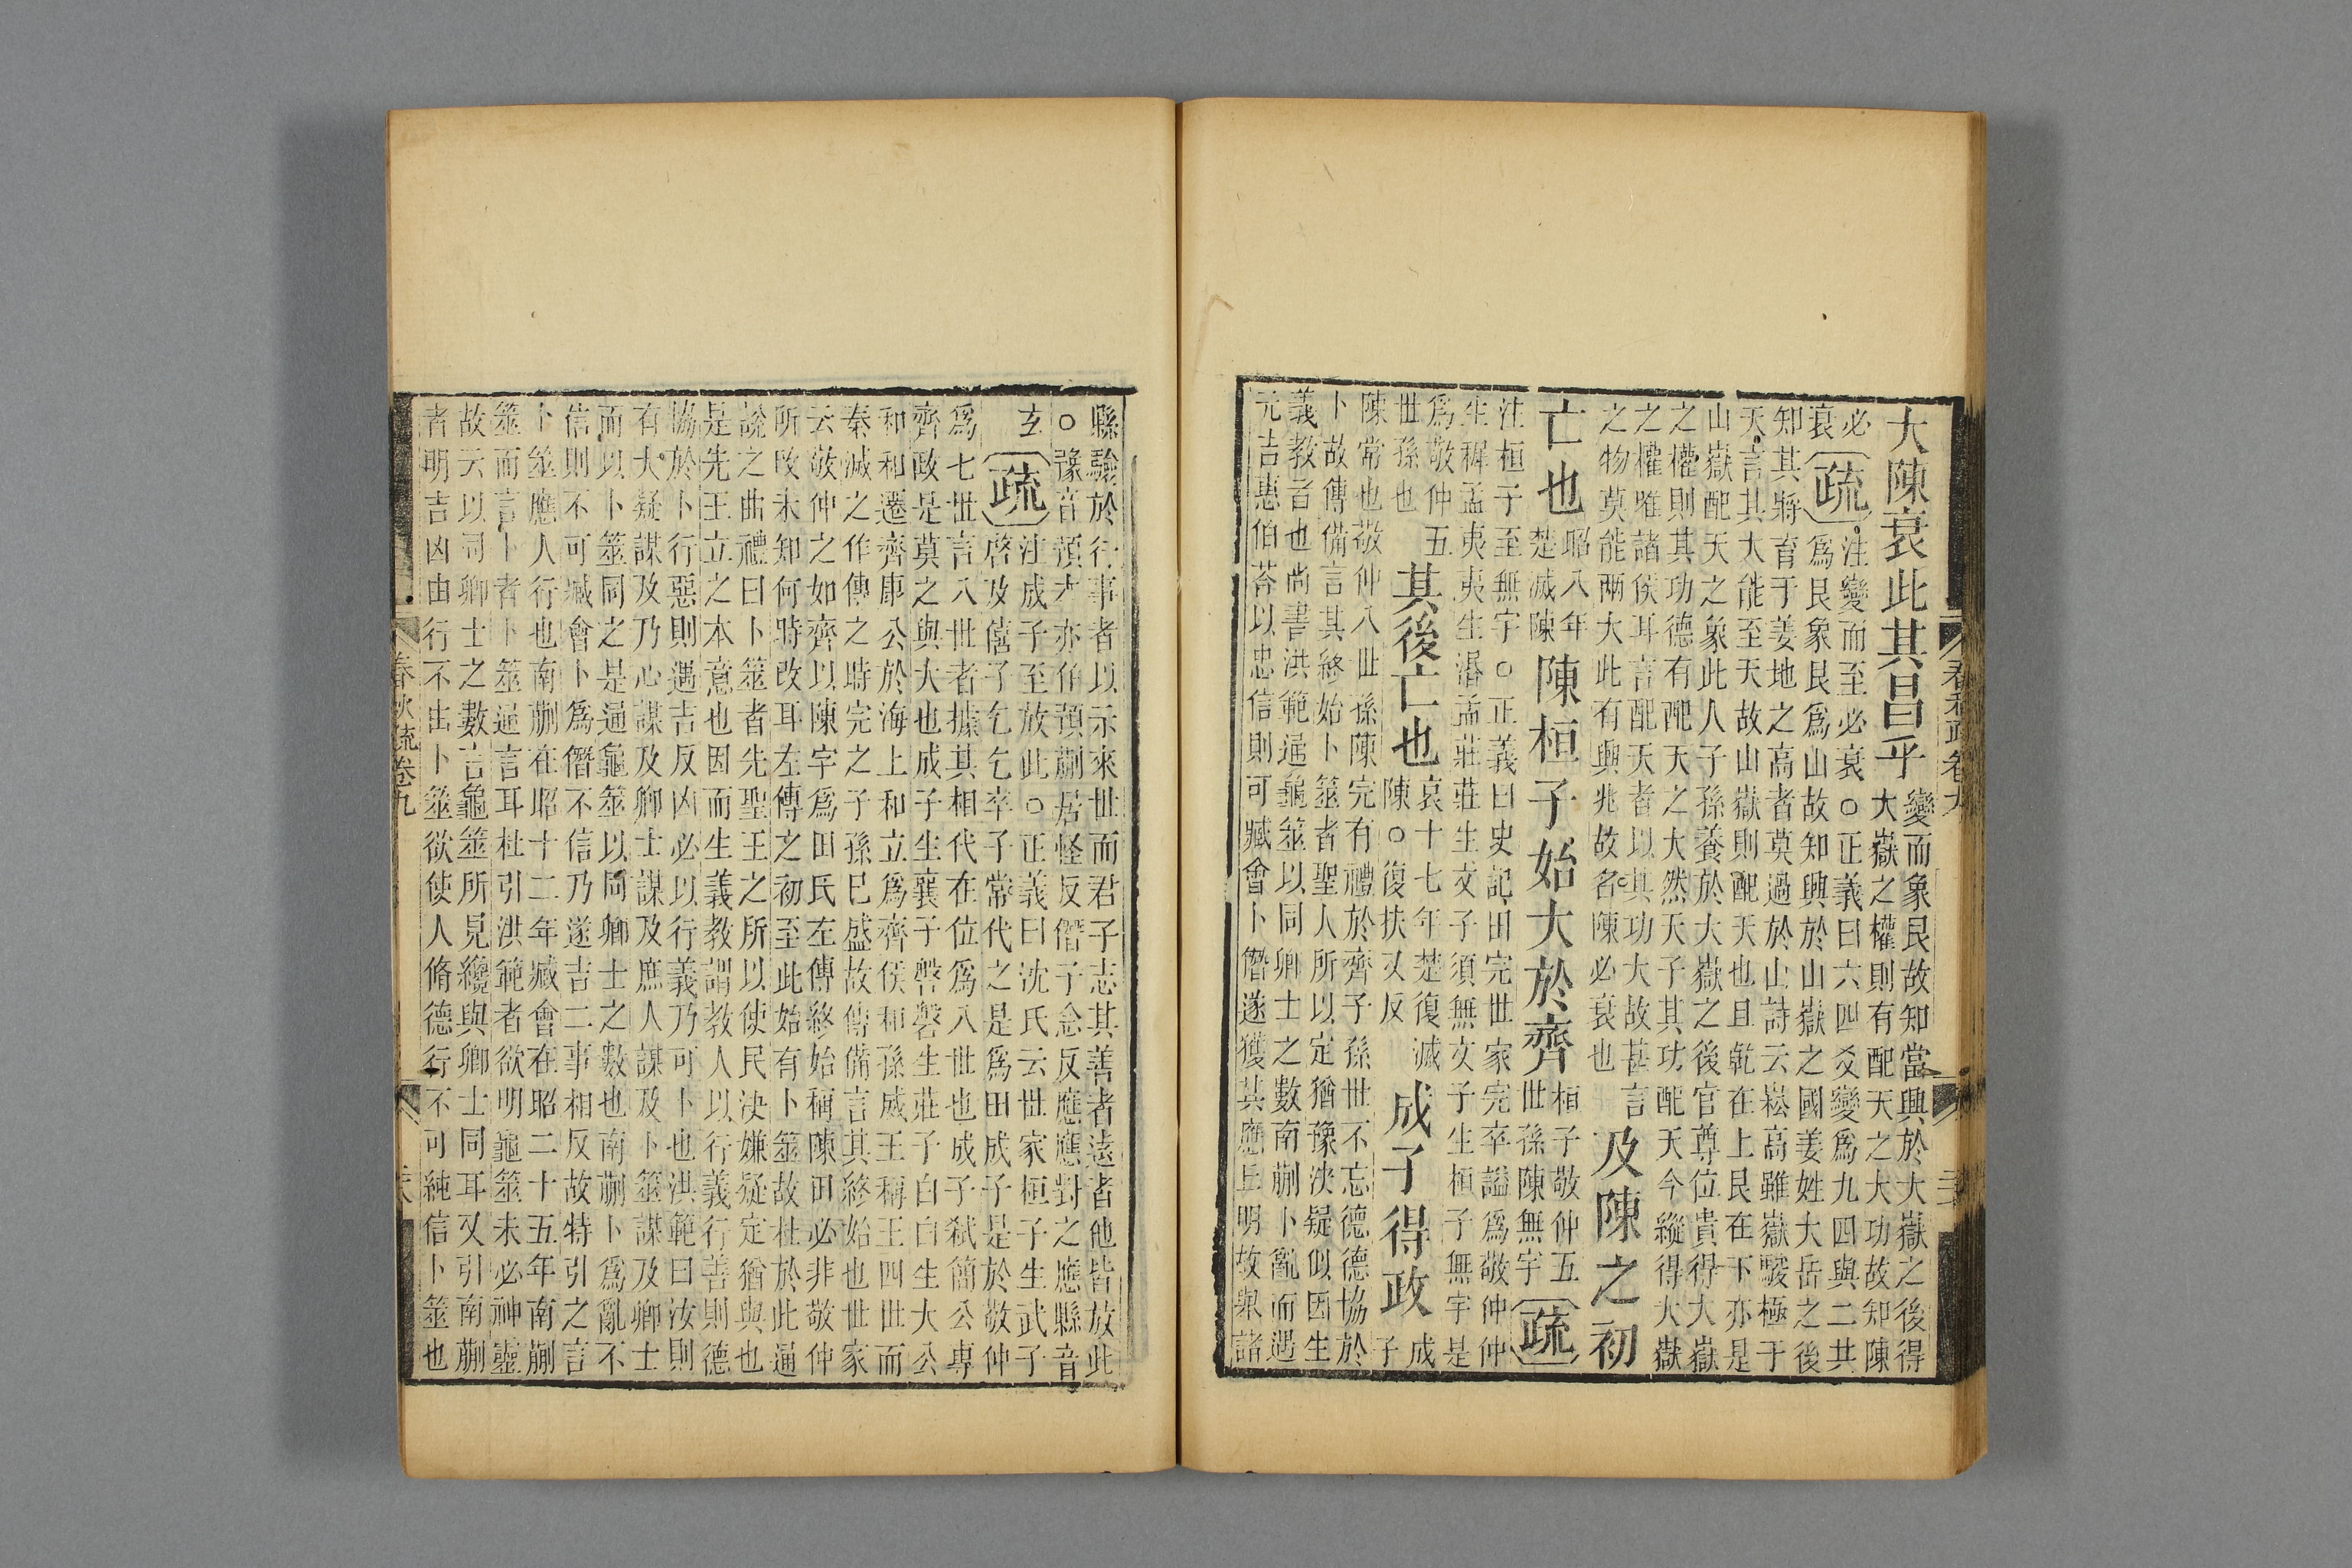 大陳衰此其昌乎
變而象艮故知當興於大嶽之後得
大嶽之權則有配天之大功故知陳
必衰
疏
注變而至必衰○正義曰六四爻變爲九四與二共
爲艮象艮爲山故知興於山嶽之國姜姓大岳之後
知其將育于姜地之高者莫過於山詩云崧高雖嶽駿極于
天言其大能至天故山嶽則配天也且乾在上艮在下亦是
山嶽配天之象此人子孫養於大嶽之後官尊位貴得大嶽
之權則其功德有配天之大然天子其功配天今縱得大嶽
之權唯諸侯耳言配天者以其功大故甚言
之物莫能兩大此有興兆故名陳必衰也
及陳之初
亡也
昭八年
楚滅陳
陳桓子始大於齊
桓子敬仲五
世孫陳無宇
疏
注桓子至無宇○正義曰史記田完世家完卒謚爲敬仲仲
生穉孟夷夷生湣孟莊莊生文子須無文子生桓子無宇是
爲敬仲五
世孫也
其後亡也
哀十七年楚復滅
陳○復扶又反
成子得政
成
子
陳常也敬仲八世孫陳完有禮於齊子孫世不忘德德協於
卜故傳備言其終始卜筮者聖人所以定猶豫決疑似因生
義教者也尚書洪範通龜筮以同卿士之數南蒯卜亂而遇
元吉惠伯荅以忠信則可臧會卜僭遂獲其應丘明故舉諸
縣驗於行事者以示來世而君子志其善者遠者他皆放此
○豫音預本亦作預蒯居怪反僭子念反應應對之應縣音
玄
疏
注成子至放此○正義曰沈氏云世家桓子生武子
啓及僖子乞乞卒子常代之是爲田成子是於敬仲
爲七世言八世者據其相代在位爲八世也成子弒簡公專
齊政是莫之與大也成子生襄子磐磐生莊子白白生大公
和和遷齊康公於海上和立爲齊侯和孫威王稱王四世而
秦滅之作傳之時完之子孫已盛故傳備言其終始也世家
云敬仲之如齊以陳字爲田氏左傳終始稱陳田必非敬仲
所改未知何時改耳左傳之初至此始有卜筮故杜於此通
說之曲禮曰卜筮者先聖王之所以使民決嫌疑定猶與也
是先王立之本意也因而生義教謂教人以行義行善則德
協於卜行惡則遇吉反凶必以行義乃可卜也洪範曰汝則
有大疑謀及乃心謀及卿士謀及庶人謀及卜筮謀及卿士
而以卜筮同之是通龜筮以同卿士之數也南蒯卜爲亂不
信則不可臧會卜爲僭不信乃遂吉二事相反故特引之言
卜筮應人行也南蒯在昭十二年臧會在昭二十五年南蒯
筮而言卜者卜筮通言耳杜引洪範者欲明龜筮未必神靈
故云以同卿士之數言龜筮所見纔與卿士同耳又引南蒯
者明吉凶由行不由卜筮欲使人脩德行不可純信卜筮也
春秋疏卷九